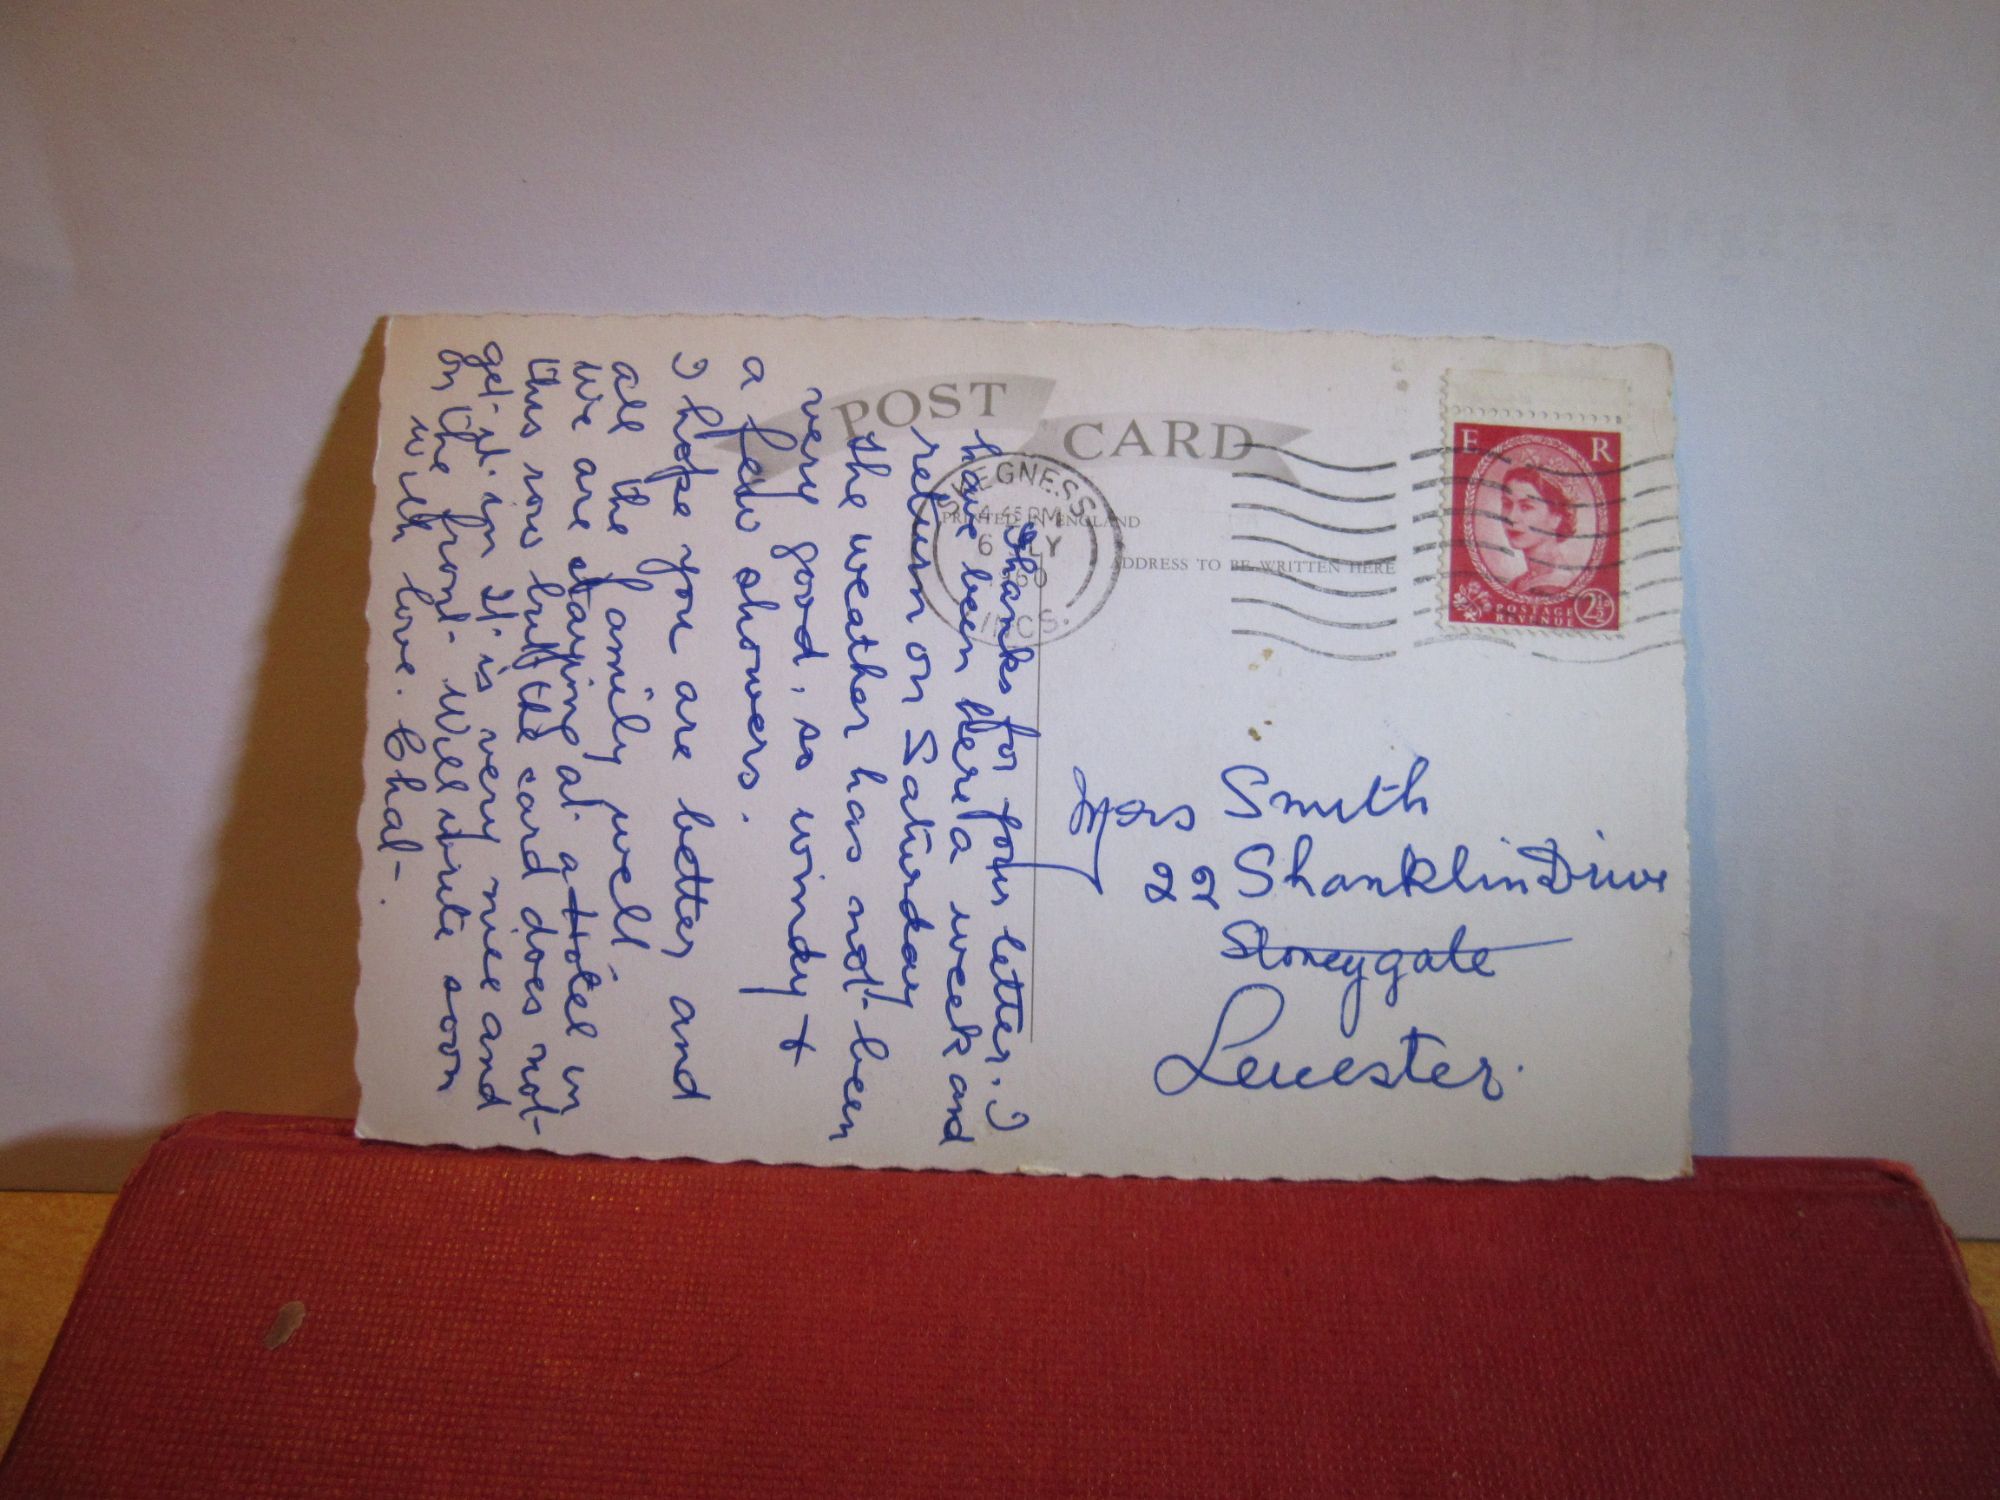 POST CARD
PRINTED IN ENGLAND
ADDRESS TO BE WRITTEN HERE
SKEGNESS
4.45 PM
6 JLY
1960
LINCS.
E R
POSTAGE
REVENUE
2½D
Thanks for your letter. I
have been here a week and
return on Saturday
the weather has not been
very good, so windy +
a few showers.
I hope you are better and
all the family well
We are staying at a Hotel in
this row but the card does not
get it in It is very nice and
on the front. Will write soon
with love.
Mrs Smith
22 Shanklin Drive
Stoneygate
Leicester.